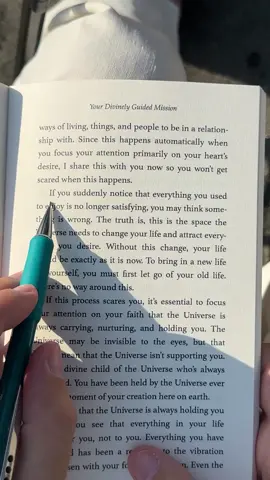 Your Divinely Guided Mission
ways of living, things, and people to be in a relation-
ship with. Since this happens automatically when
you focus your attention primarily on your heart's
desire, I share this with you now so you won't get
scared when this happens.
If you suddenly notice that everything you used
to enjoy is no longer satisfying, you may think some-
is wrong. The truth is, this is the space the
needs to change your life and attract every-
you desire. Without this change, your life
be exactly as it is now. To bring in a new life
yourself, you must first let go of your old life.
no way around this.
If this process scares you, it's essential to focus
your attention on your faith that the Universe is
always carrying, nurturing, and holding you. The
Universe may be invisible to the eyes, but that
mean that the Universe isn't supporting you.
divine child of the Universe who's always
You have been held by the Universe ever
moment of your creation here on earth.
that the Universe is always holding you
you see that everything in your life
you, not to you. Everything you have
has been a to the vibration
with your Even the